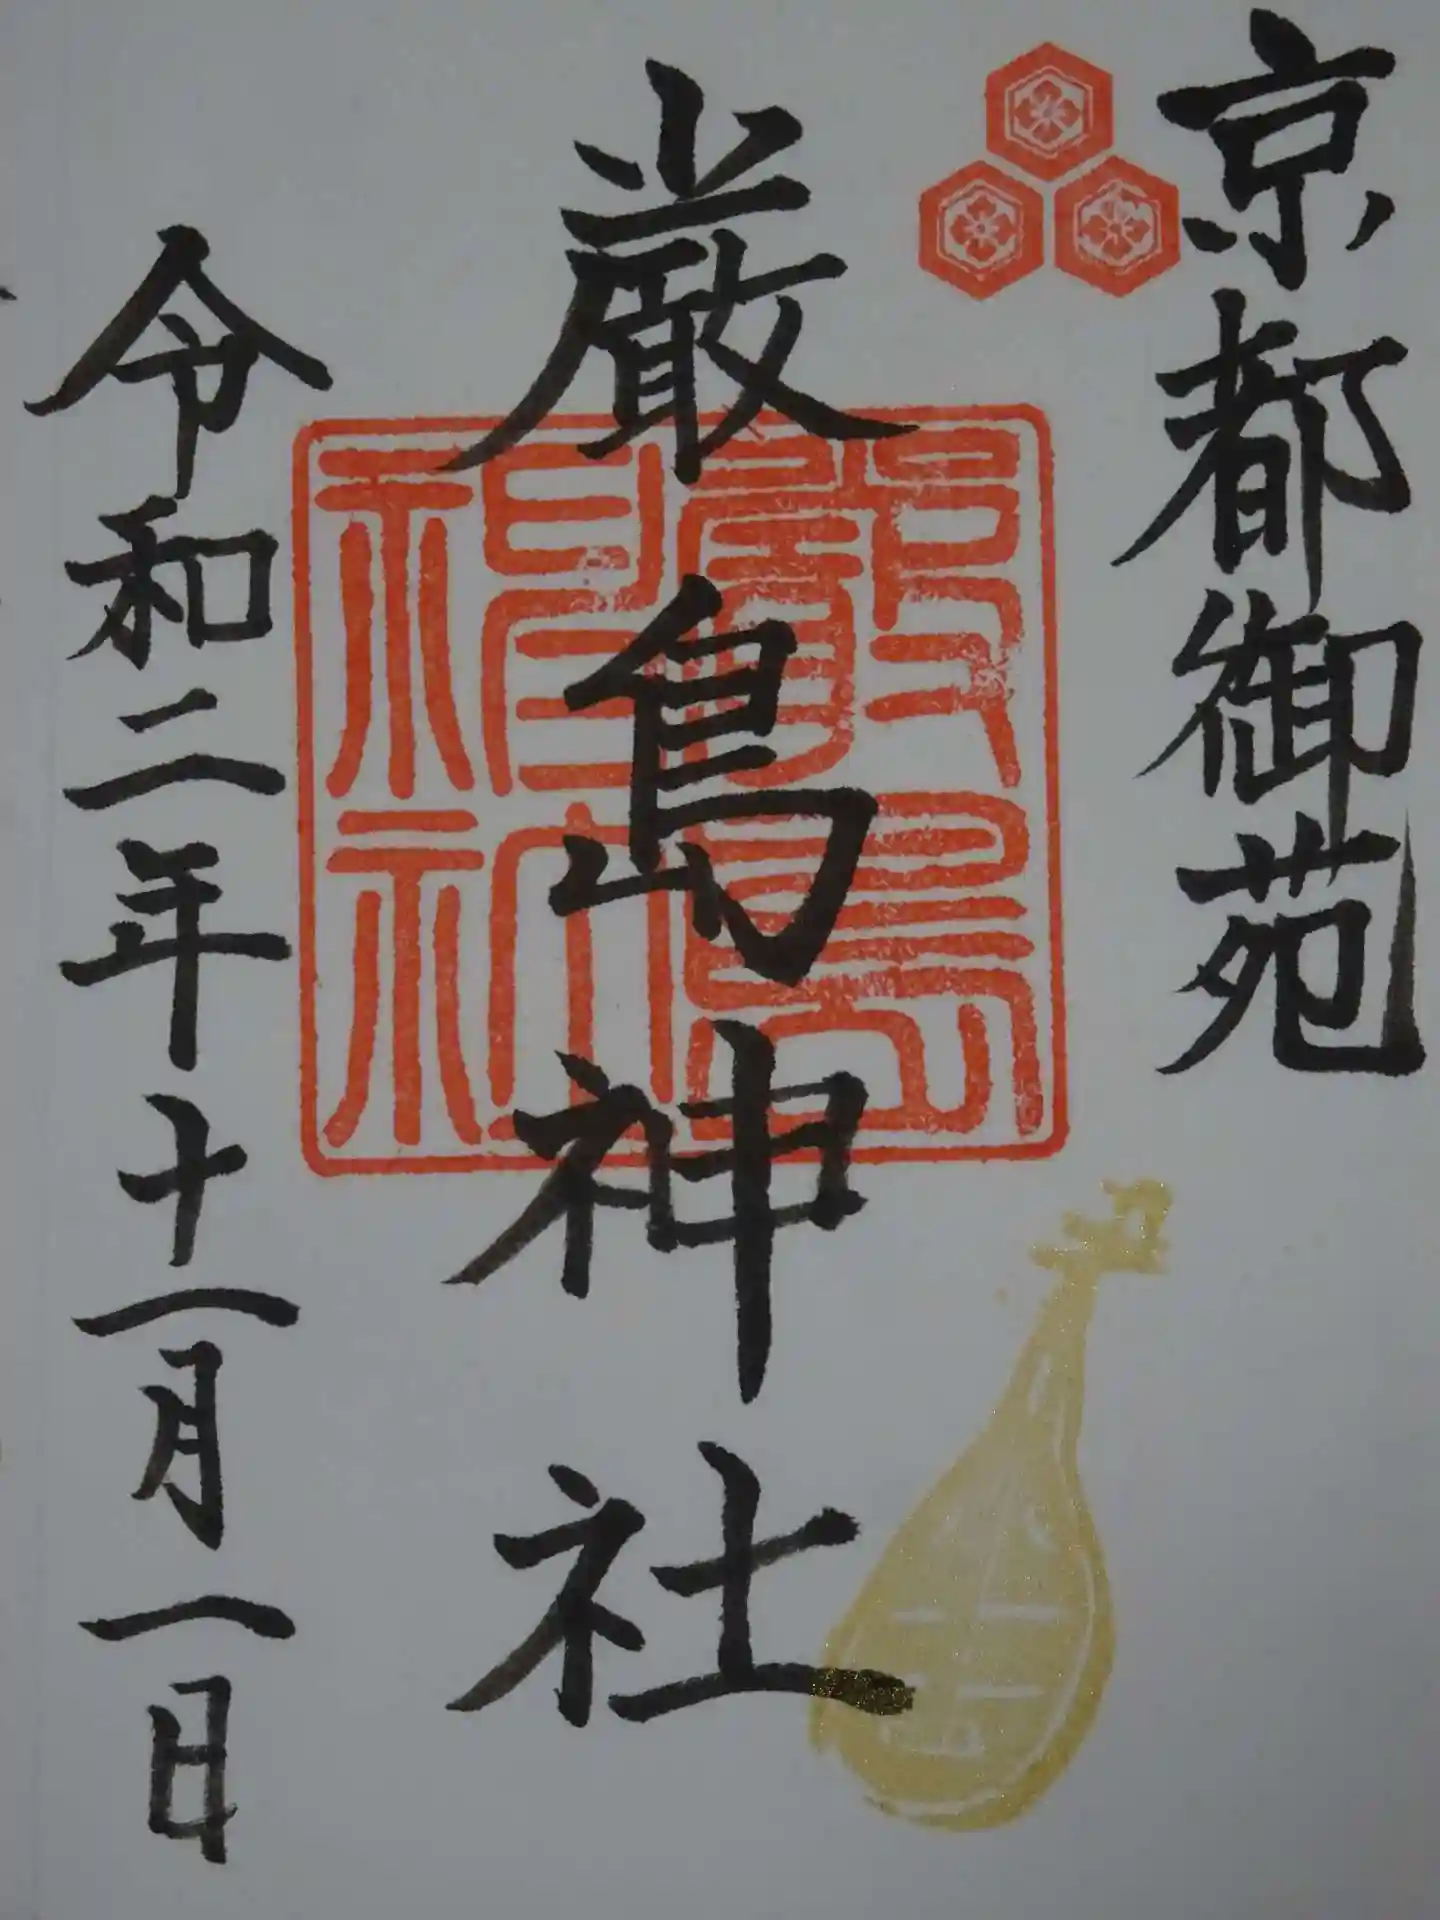 京都御苑
厳島神社
令和二年十一月一日